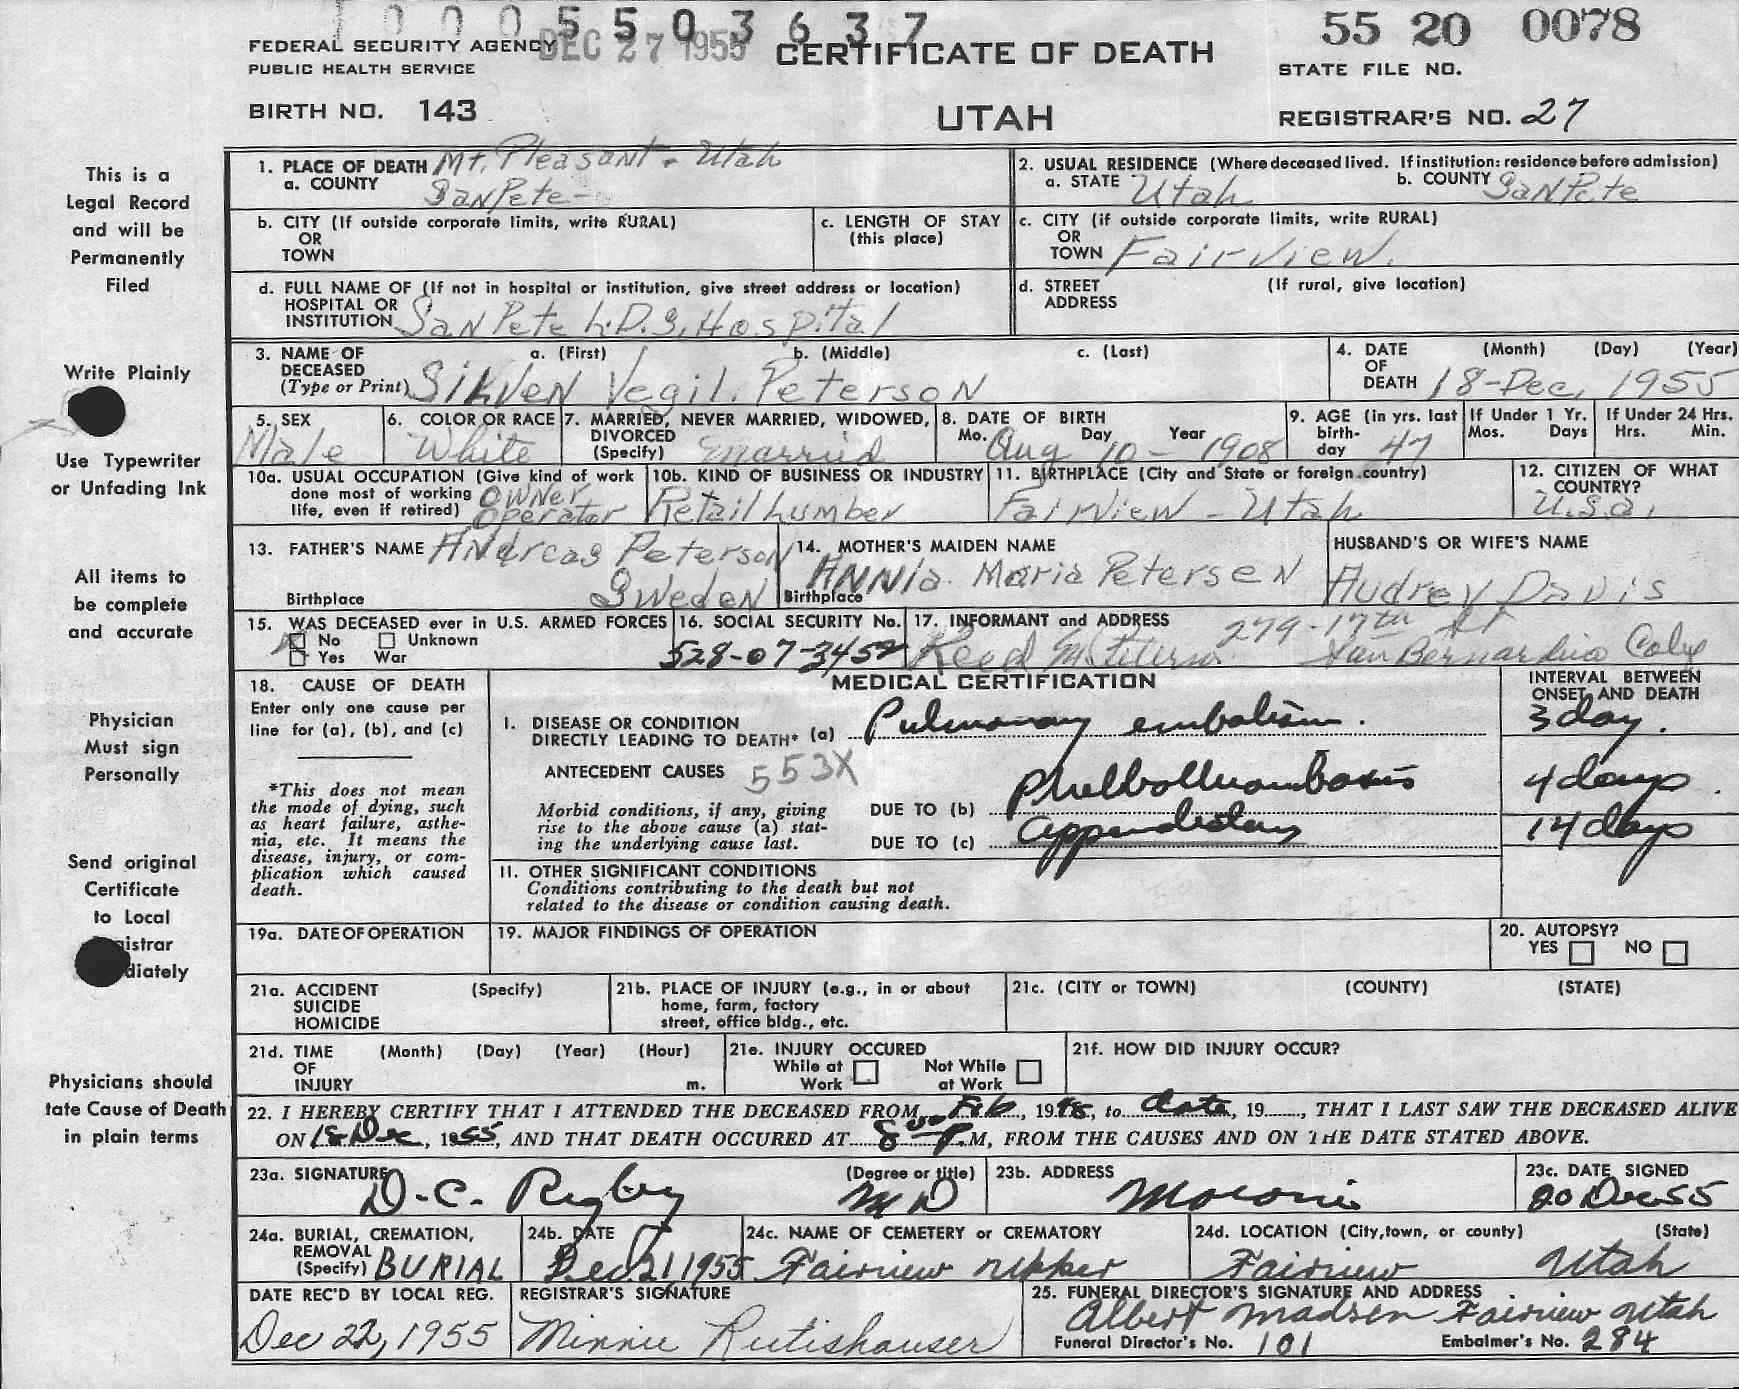 0 0 0 5 5 0 3 6 3 7
55 20 0078
FEDERAL SECURITY AGENCY DEC 27 1955 CERTIFICATE OF DEATH
PUBLIC HEALTH SERVICE STATE FILE NO.
BIRTH NO. 143 UTAH REGISTRAR'S NO. 27
This is a
Legal Record
and will be
Permanently
Filed
Write Plainly
Use Typewriter
or Unfading Ink
All items to
be complete
and accurate
Physician
Must sign
Personally
Send original
Certificate
to Local
istrar
diately
Physicians should
tate Cause of Death
in plain terms
1. PLACE OF DEATH Mt. Pleasant - Utah
a. COUNTY SanPete
2. USUAL RESIDENCE (Where deceased lived. If institution: residence before admission)
a. STATE Utah b. COUNTY SanPete
b. CITY (If outside corporate limits, write RURAL)
OR
TOWN
c. LENGTH OF STAY
(this place)
c. CITY (if outside corporate limits, write RURAL)
OR
TOWN Fairview.
d. FULL NAME OF (If not in hospital or institution, give street address or location)
HOSPITAL OR
INSTITUTION SanPete L.D.S. Hospital
d. STREET (If rural, give location)
ADDRESS
3. NAME OF a. (First) b. (Middle) c. (Last)
DECEASED
(Type or Print) Sikven Vegil. Peterson
4. DATE (Month) (Day) (Year)
OF
DEATH 18-Dec, 1955
5. SEX
Male
6. COLOR OR RACE
White
7. MARRIED, NEVER MARRIED, WIDOWED,
DIVORCED
(Specify) married
8. DATE OF BIRTH
Mo. Day Year
Aug 10 - 1908
9. AGE (in yrs. last
birth-
day 47
If Under 1 Yr.
Mos. Days
If Under 24 Hrs.
Hrs. Min.
10a. USUAL OCCUPATION (Give kind of work
done most of working
life, even if retired) Owner
Operator
10b. KIND OF BUSINESS OR INDUSTRY
Retail Lumber
11. BIRTHPLACE (City and State or foreign country)
Fairview - Utah
12. CITIZEN OF WHAT
COUNTRY?
U.S.A.
13. FATHER'S NAME Andreas Peterson
Birthplace Sweden
14. MOTHER'S MAIDEN NAME
Annia Maria Petersen
Birthplace
HUSBAND'S OR WIFE'S NAME
Audrey Davis
15. WAS DECEASED ever in U.S. ARMED FORCES
No Unknown
Yes War
16. SOCIAL SECURITY No.
528-07-3452
17. INFORMANT and ADDRESS 279-17th St
Reed M. Peterson San Bernardino Calif
MEDICAL CERTIFICATION
18. CAUSE OF DEATH
Enter only one cause per
line for (a), (b), and (c)
*This does not mean
the mode of dying, such
as heart failure, asthe-
nia, etc. It means the
disease, injury, or com-
plication which caused
death.
INTERVAL BETWEEN
ONSET AND DEATH
I. DISEASE OR CONDITION
DIRECTLY LEADING TO DEATH* (a) Pulmonary embolism. 3 day.
ANTECEDENT CAUSES 553X
Morbid conditions, if any, giving
rise to the above cause (a) stat-
ing the underlying cause last.
DUE TO (b) Phlebothrombosis 4 days.
DUE TO (c) appendectomy 14 days
II. OTHER SIGNIFICANT CONDITIONS
Conditions contributing to the death but not
related to the disease or condition causing death.
19a. DATE OF OPERATION
19. MAJOR FINDINGS OF OPERATION
20. AUTOPSY?
YES NO
21a. ACCIDENT (Specify)
SUICIDE
HOMICIDE
21b. PLACE OF INJURY (e.g., in or about
home, farm, factory
street, office bldg., etc.
21c. (CITY or TOWN) (COUNTY) (STATE)
21d. TIME (Month) (Day) (Year) (Hour)
OF
INJURY m.
21e. INJURY OCCURED
While at Work Not While at Work
21f. HOW DID INJURY OCCUR?
22. I HEREBY CERTIFY THAT I ATTENDED THE DECEASED FROM Feb, 1948, to date, 19....., THAT I LAST SAW THE DECEASED ALIVE
ON 18 Dec, 1955, AND THAT DEATH OCCURED AT 8 00 P.M, FROM THE CAUSES AND ON THE DATE STATED ABOVE.
23a. SIGNATURE (Degree or title)
D. C. Rigby M D
23b. ADDRESS
Moroni
23c. DATE SIGNED
20 Dec 55
24a. BURIAL, CREMATION,
REMOVAL
(Specify) BURIAL
24b. DATE
Dec. 21 1955
24c. NAME OF CEMETERY or CREMATORY
Fairview Upper
24d. LOCATION (City, town, or county) (State)
Fairview Utah
DATE REC'D BY LOCAL REG.
Dec 22, 1955
REGISTRAR'S SIGNATURE
Minnie Rutishauser
25. FUNERAL DIRECTOR'S SIGNATURE AND ADDRESS
Albert Madsen Fairview Utah
Funeral Director's No. 101 Embalmer's No. 284